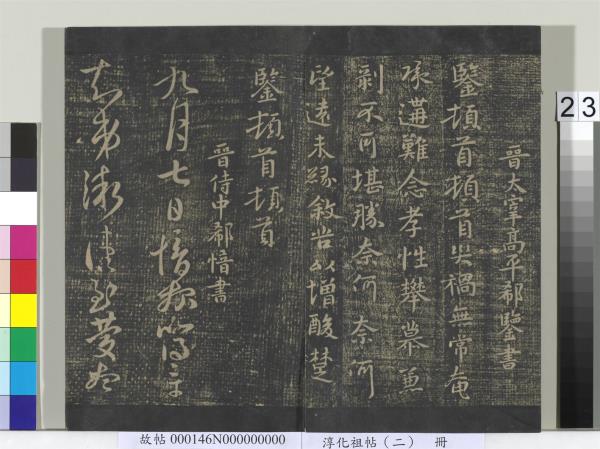 晉太宰高平郗鑒書
鑒頓首頓首災禍無常奄
承遘難念孝性攀慕兼
剝不可堪勝奈何奈何
望遠未緣敘苦以增酸楚
鑒頓首頓首
晉侍中郗愔書
九月七日愔報
故帖 000146N000000000
淳化祖帖（二） 冊
23